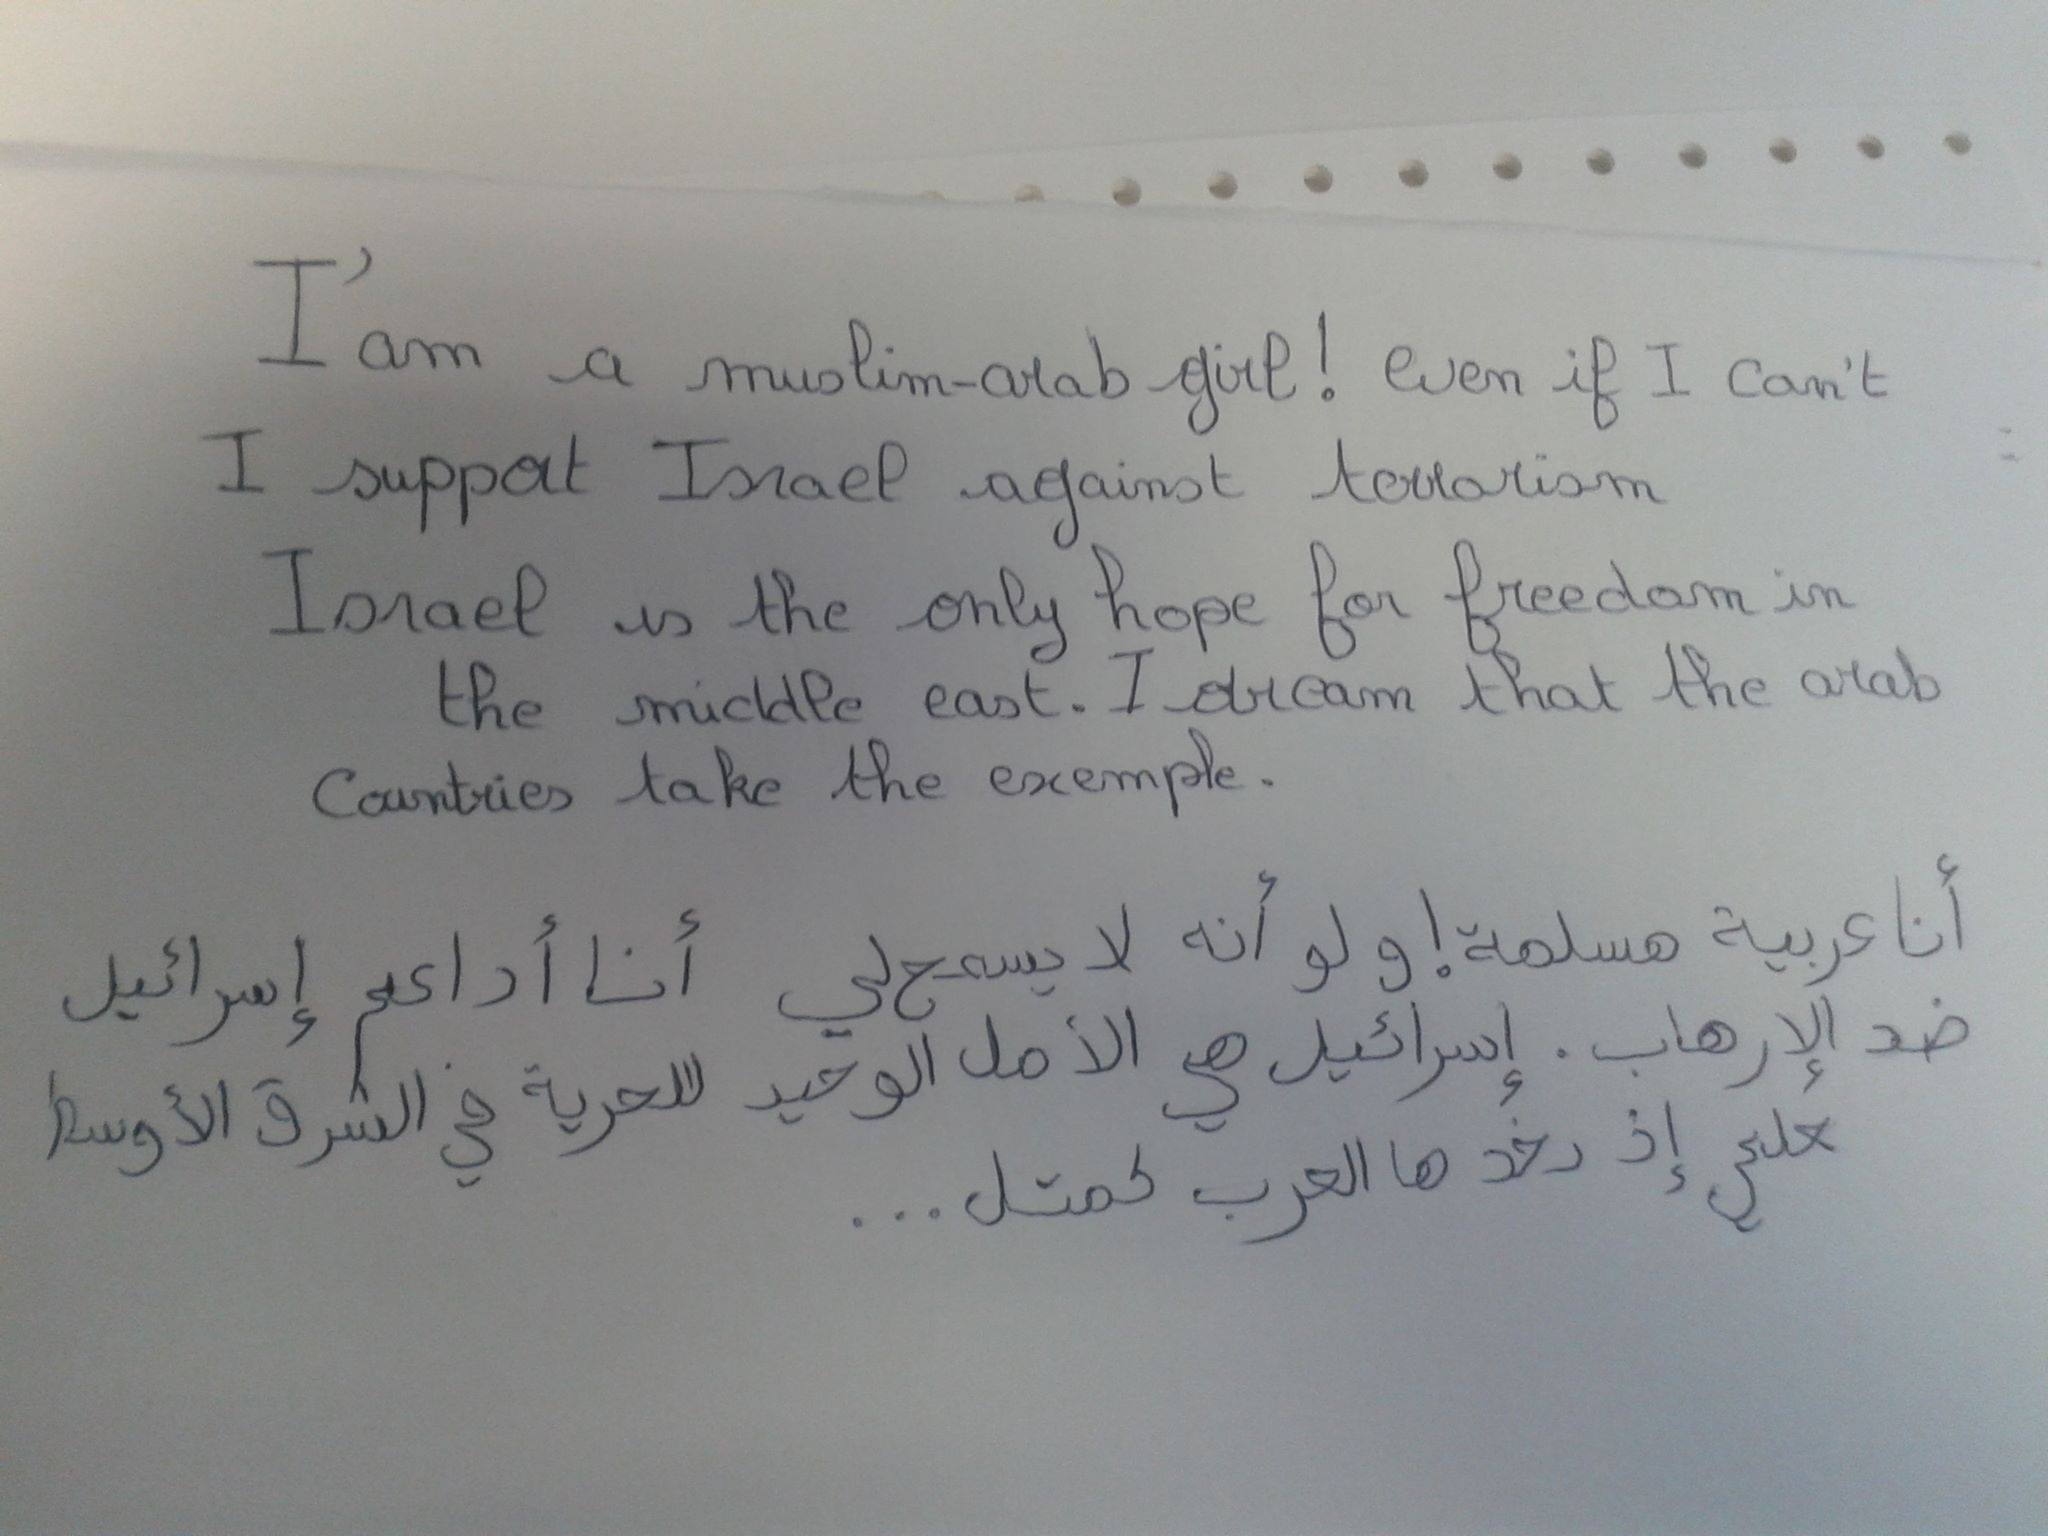 I'am a muslim-arab girl! even if I can't
I support Israel against terrorism
Israel is the only hope for freedom in
the middle east. I dream that the arab
countries take the exemple.
أنا عربية مسلمة! ولو أنه لا يسمح لي أنا أداعم إسرائيل
ضد الإرهاب. إسرائيل هي الأمل الوحيد للحرية في الشرق الأوسط
إذ العرب كمتل...